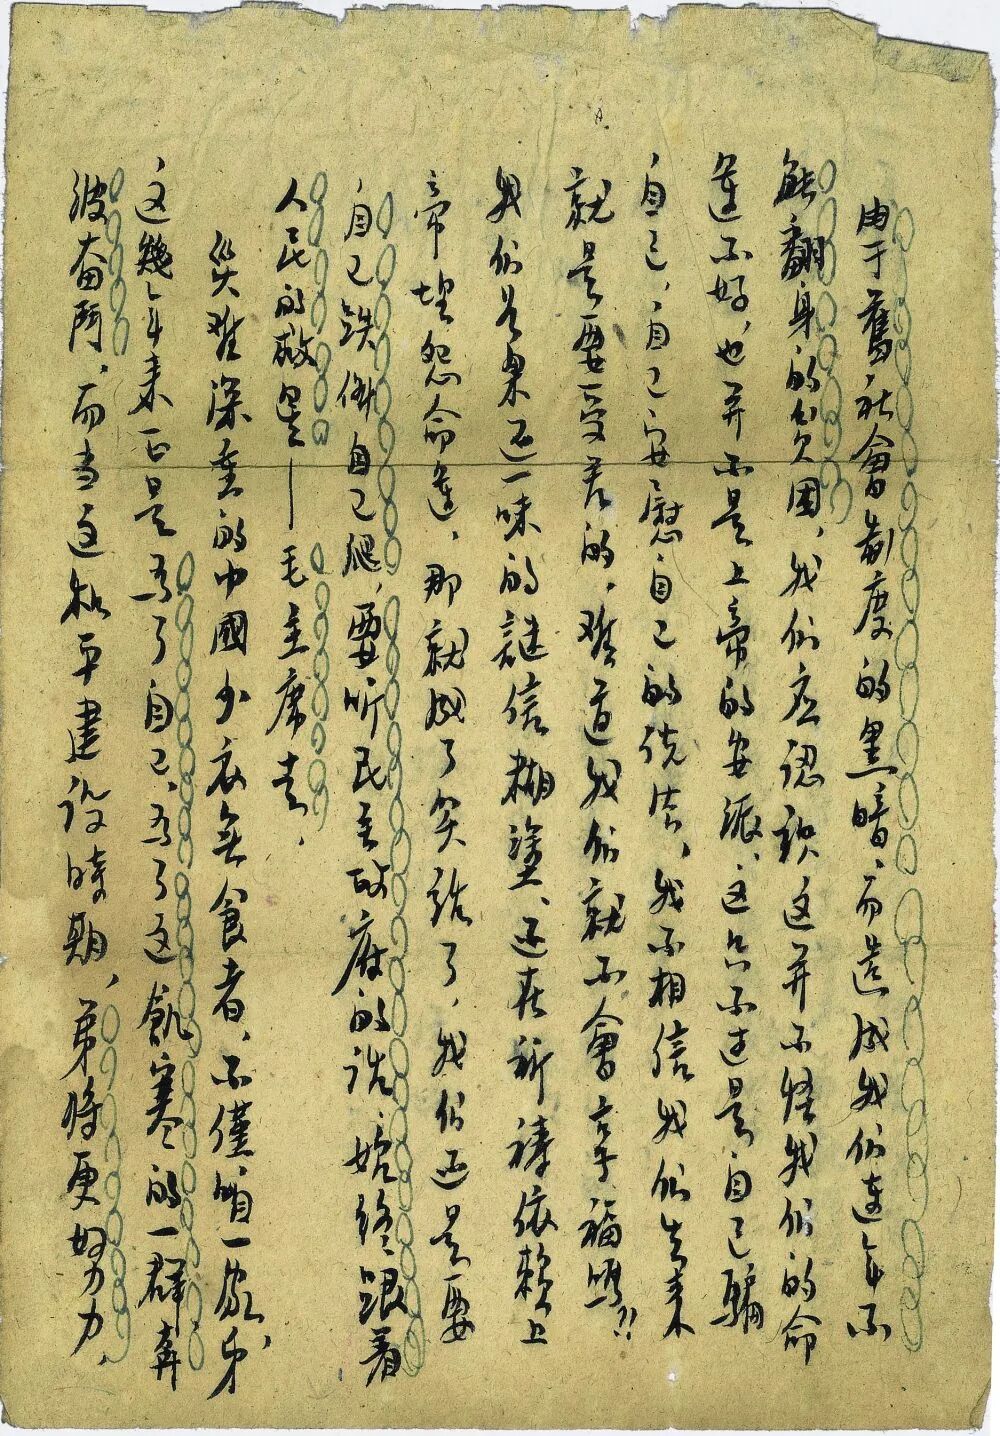 由于舊社會制度的黑暗，而造成我们連年不
能翻身的貧困，我们应認識这并不怪我们的命
運不好，也并不是上帝的安派，这只不过是自己騙
自己，自己安慰自己的説法，我不相信我们生来
就是要受苦的，难道我们就不會享福嗎？！
我们若果还一味的謎信糊塗、还在祈禱依赖上
帝埋怨命運，那就成了笑話了，我们还是要
自己跌倒自己爬，要听民主政府的話，始终跟着
人民的救星——毛主席走，
災难深重的中國少衣無食者，不僅咱一家，弟
这幾年来正是为了自己、为了这飢寒的一群奔
波奋鬥，而当这和平建設時期，弟将更努力，